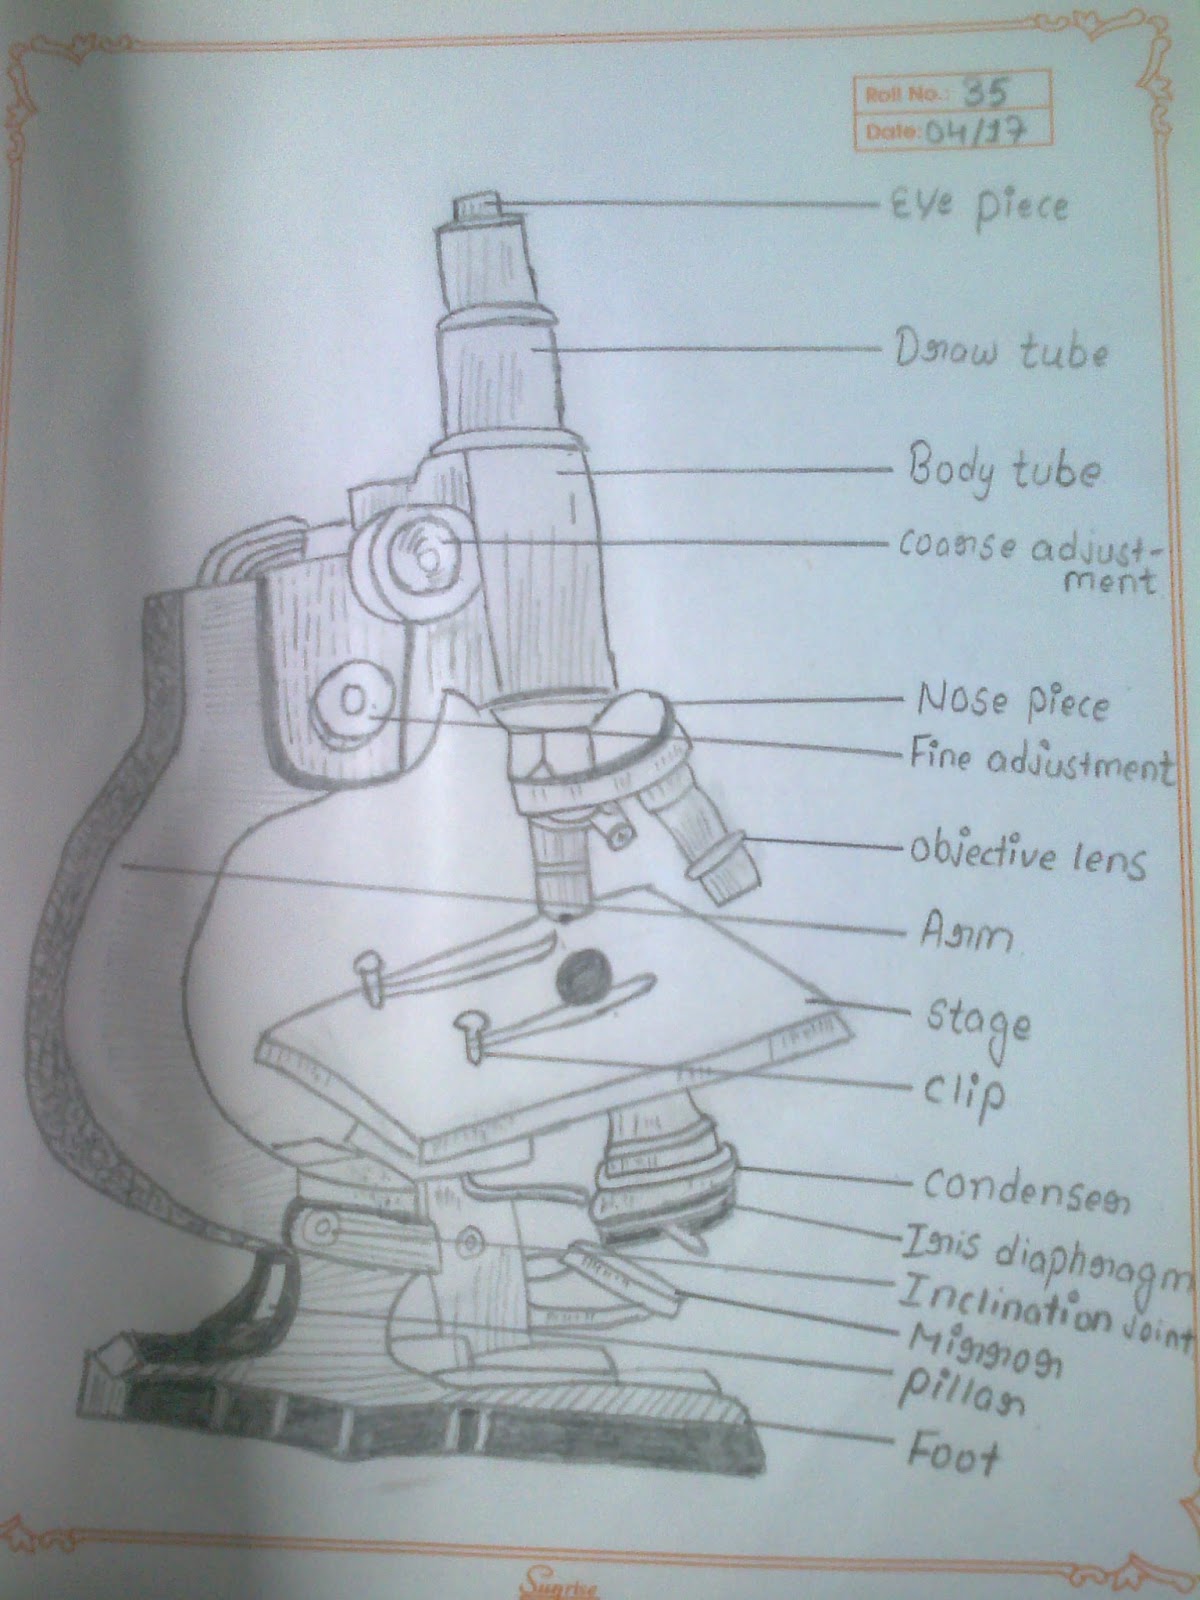 Roll No.: 35
Date: 04/17
Eye piece
Draw tube
Body tube
coarse adjust-
ment
Nose piece
Fine adjustment
objective lens
Arm
stage
clip
condenser
Iris diaphragm
Inclination Joint
Mirror
pillar
Foot
Sunrise